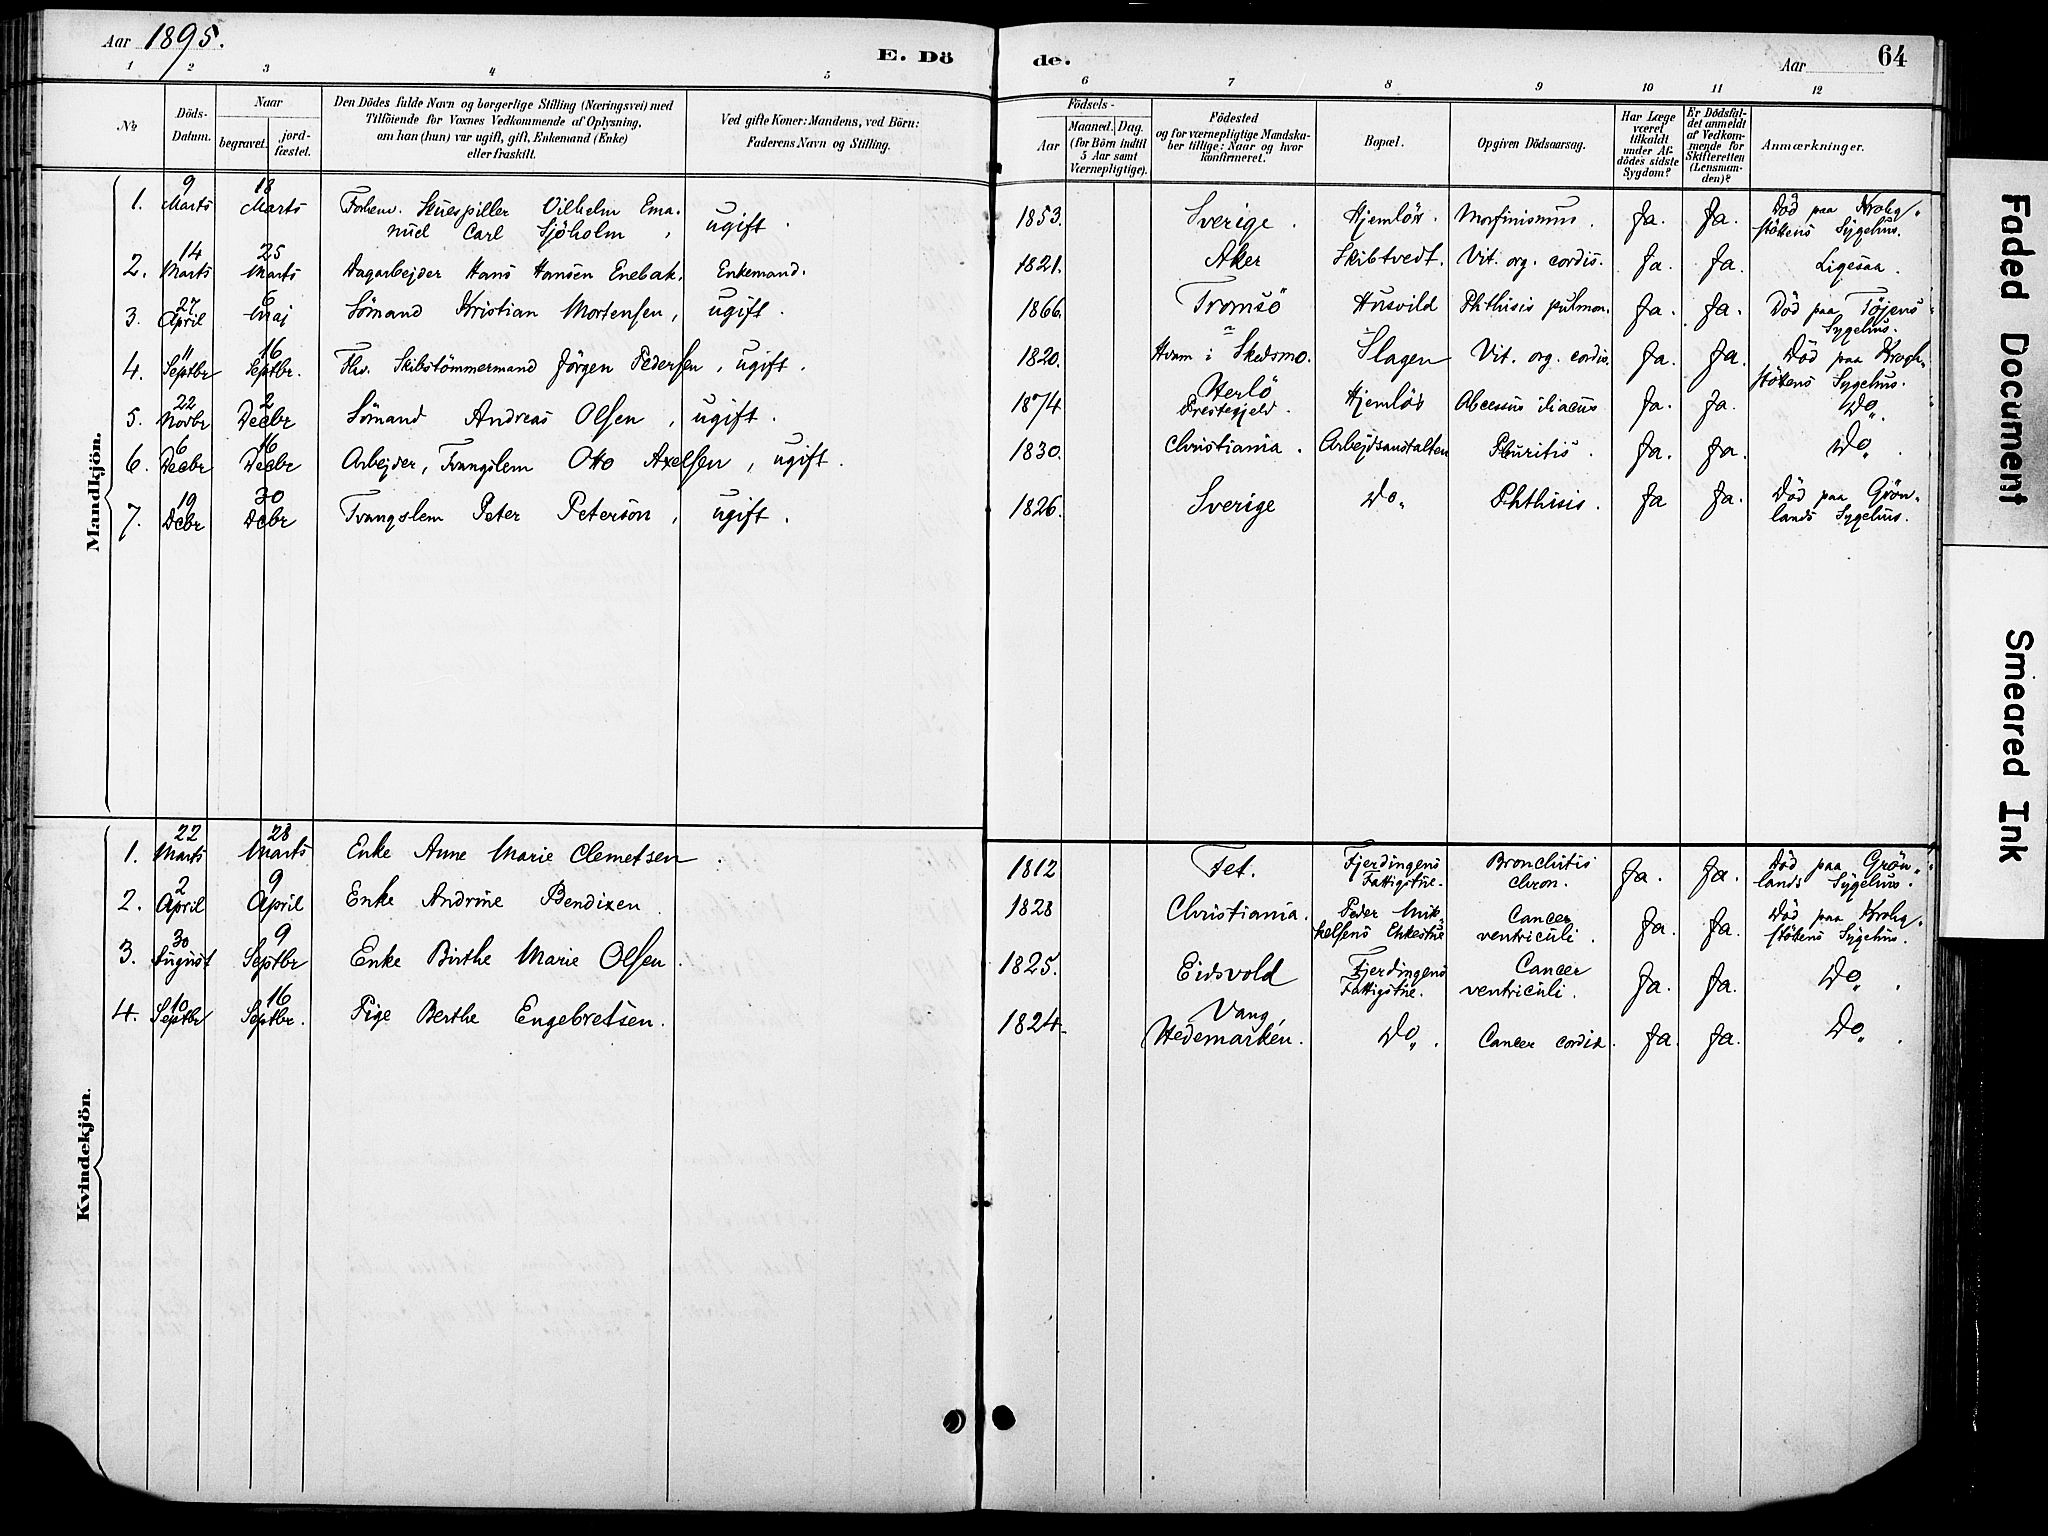 Aar 1895.
E. Dö
de.
Aar
64
1 2 3 4 5
6 7 8 9 10 11 12
№
Döds-
Datum.
Naar
begravet.
jord-
fæstet.
Den Dödes fulde Navn og borgerlige Stilling (Næringsvei) med
Tilföiende for Voxnes Vedkommende af Oplysning,
om han (hun) var ugift, gift, Enkemand (Enke)
eller fraskilt.
Ved gifte Koner: Mandens, ved Börn:
Faderens Navn og Stilling.
Födsels-
Aar
Maaned. Dag.
(for Börn indtil
5 Aar samt
Værnepligtige).
Födested
og for værnepligtige Mandska-
ber tillige: Naar og hvor
konfirmeret.
Bopæl.
Opgiven Dödsaarsag.
Har Læge
været
tilkaldt
under Af-
dödes sidste
Sygdom?
Er Dödsfal-
det anmeldt
af Vedkom-
mende for
Skifteretten
(Lensman-
den)?
Anmærkninger.
Mandkjön.
9 18
1. Marts Marts Forhenv. Skuespiller Vilhelm Ema- ugift. 1853. Sverige. Hjemlös. Morfinismus. Ja. Ja. Död paa Krohg-
nuel Carl Sjöholm, stöttens Sygehus.
14 25
2. Marts Marts Dagarbejder Hans Hansen Enebak. Enkemand. 1821. Aker Skibtvedt. Vit. org. cordis. Ja. Ja. Ligesaa.
27 6
3. April Maj Sömand Kristian Mortensen, ugift. 1866. Tromsö Husvild Phthisis pulmon. Ja. Ja. Död paa Töjens
Sygehus.
11 16
4. Septbr Septbr. Fhv. Skibstömmermand Jörgen Pedersen, ugift. 1820. Hvam i Skedsmo. Slagen Vit. org. cordis. Ja. Ja. Död paa Krogh-
stöttens Sygehus.
22 2
5. Novbr Decbr Sömand Andreas Olsen, ugift. 1874. Herlö Hjemlös Abcessus iliacus Ja. Ja. Do.
Prestegjeld.
6 16
6. Decbr Decbr Arbejder, Tvangslem Otto Axelsen, ugift. 1830. Christiania. Arbejdsanstalten Pleuritis. Ja. Ja. Do.
19 30
7. Dcbr Dcbr Tvangslem Peter Peterson, ugift. 1826. Sverige Do. Phthisis. Ja Ja. Död paa Grön-
lands Sygehus.
Kvindekjön.
22 28
1. Marts Marts Enke Anne Marie Clemetsen. 1812 Fet. Fjerdingens Bronchitis Ja. Ja. Död paa Grön-
Fattigstue. chron. lands Sygehus.
2 9
2. April April Enke Andrine Bendixen. 1828 Christiania. Peder Mik- Cancer Ja. Ja. Död paa Krohg-
kelsens Enkestue ventriculi. stöttens Sygehus.
30 9
3. August Septbr Enke Birthe Marie Olsen. 1825. Eidsvold Fjerdingens Cancer Ja. Ja. Do.
Fattigstue. ventriculi.
10 16
4. Septbr Septbr. Pige Berthe Engebretsen. 1824. Vang, Do. Cancer cordis. Ja. Ja. Do.
Hedemarken.
Faded Document
Smeared Ink